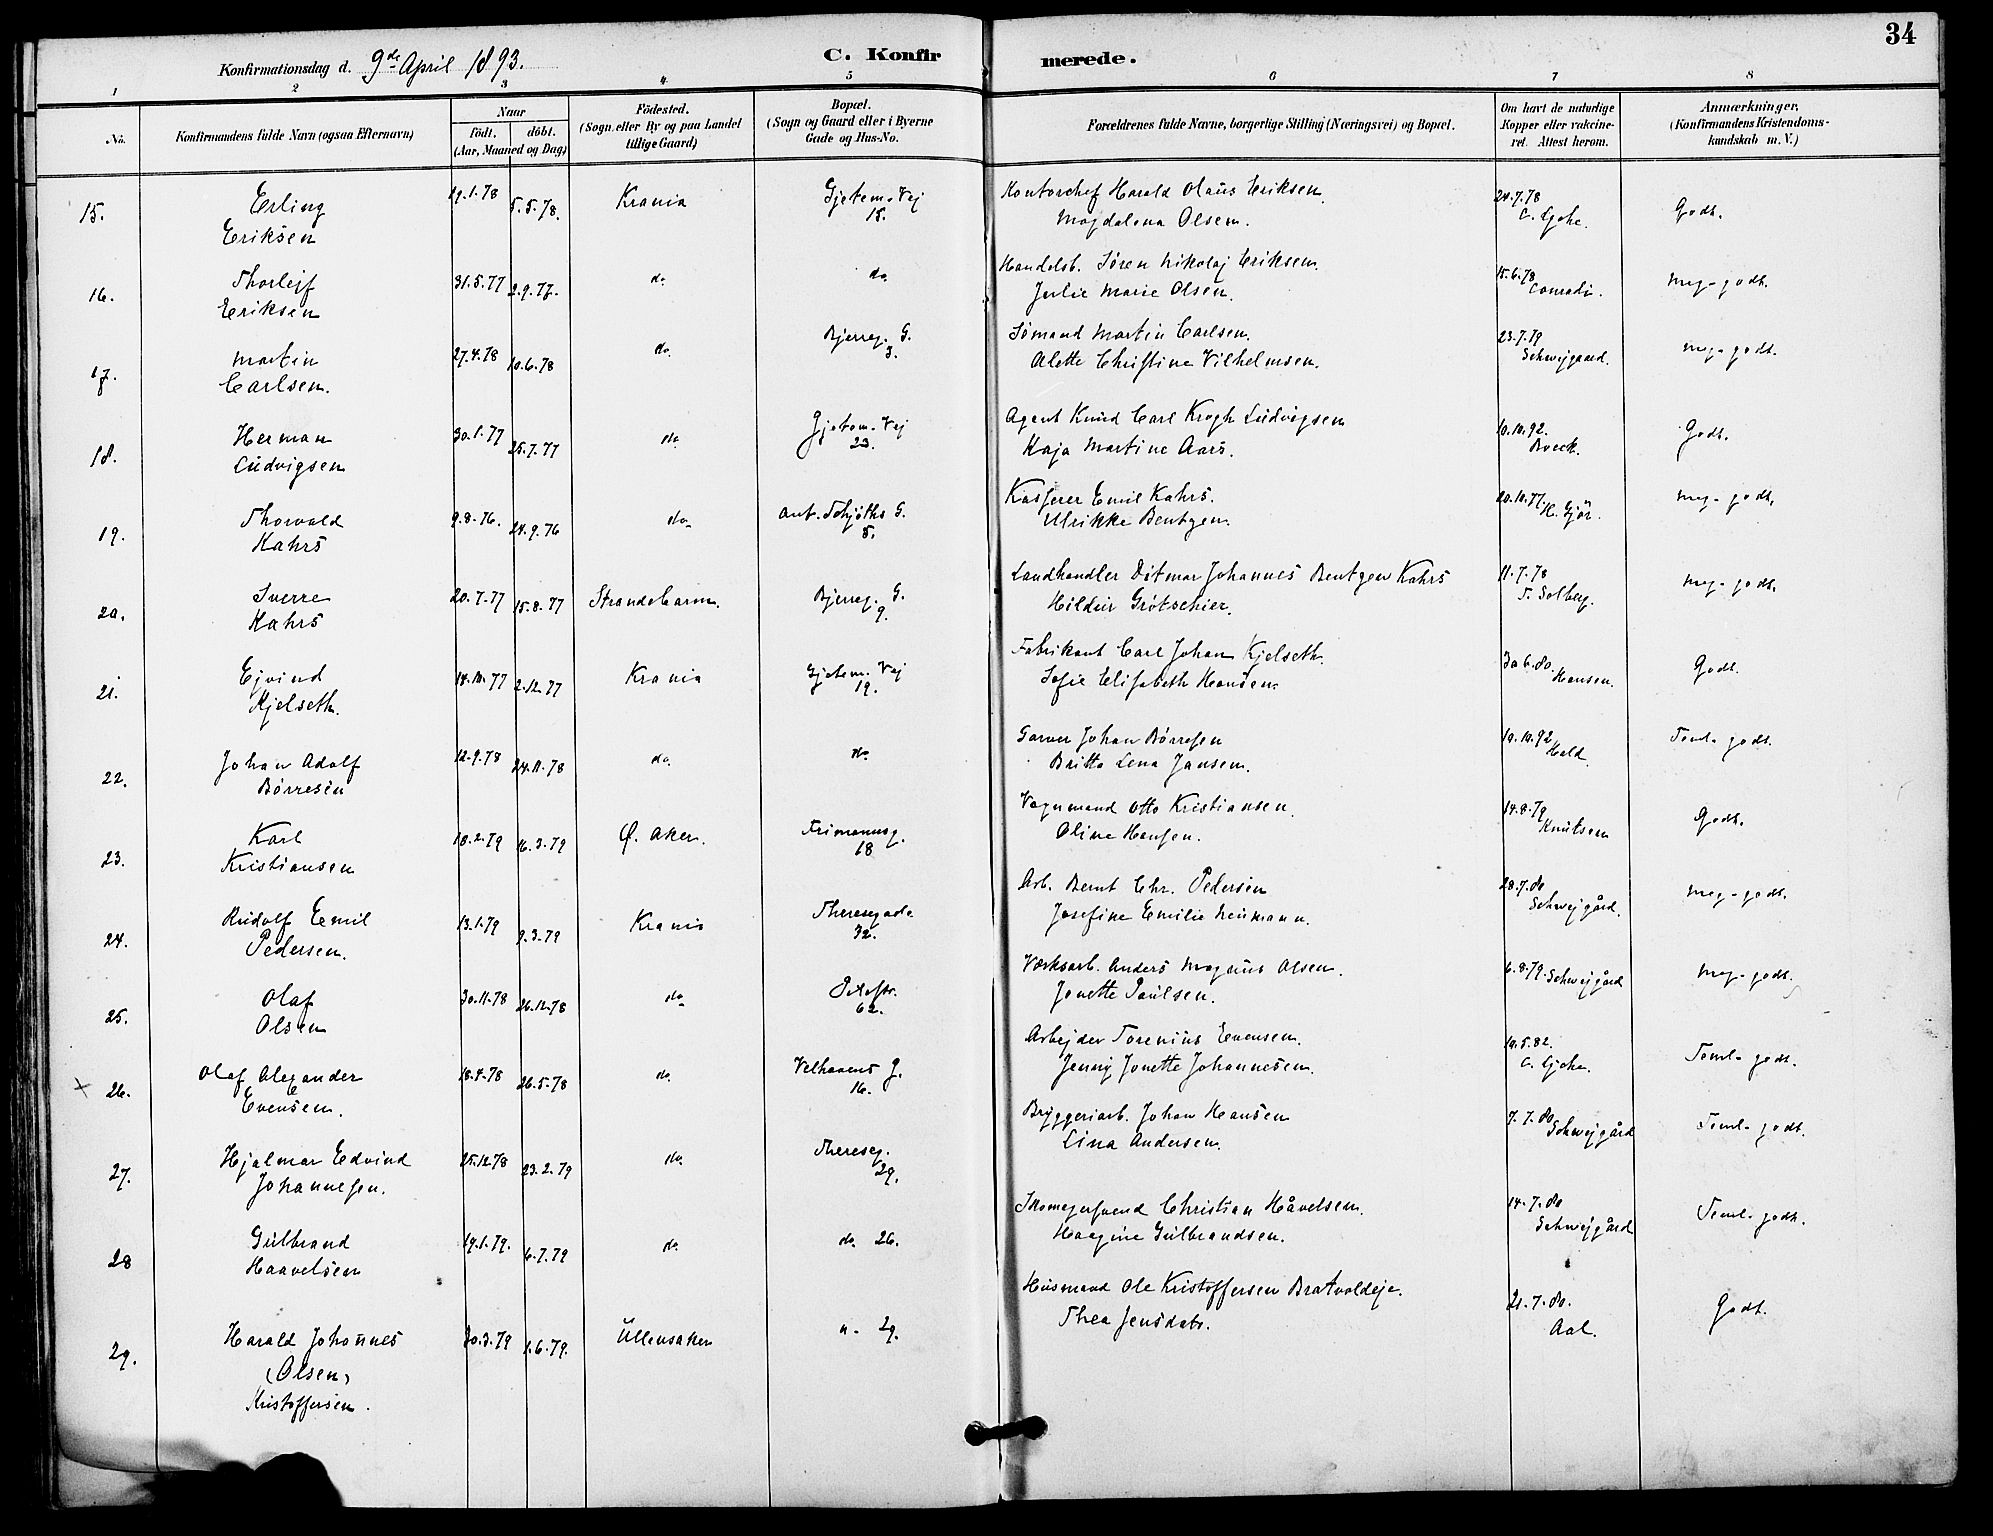 34
Konfirmationsdag d. 9de April 1893.
C. Konfirmerede.
1 2 3 4 5 6 7 8
No.
Konfirmandens fulde Navn (ogsaa Efternavn)
Naar
födt. döbt.
(Aar, Maaned og Dag)
Födested.
(Sogn eller By og paa Landet
tillige Gaard)
Bopæl.
(Sogn og Gaard eller i Byerne
Gade og Hus-No.
Forældrenes fulde Navne, borgerlige Stilling (Næringsvei) og Bopæl.
Om havt de naturlige
Kopper eller vakcine-
ret. Attest herom.
Anmærkninger,
(Konfirmandens Kristendoms-
kundskab m. V.)
15. Erling 19.1.78 5.5.78. Krania Gjetem. Vej Kontorchef Harald Olaus Eriksen. 24.7.78 Godt.
Eriksen 15. Magdalena Olsen. C.
16. Thorlejf 31.5.77 2.9.77. do do Handelsb. Sören Nikolaj Eriksen. 15.6.78 Meg. godt.
Eriksen Julie Marie Olsen. Conradi.
17. Martin 27.4.78 10.6.78 do. Bjerreg. G. Sömand Martin Carlsen. 23.7.79 Meg. godt.
Carlsen. 3. Alette Christine Vilhelmsen. Schwejgaard.
18. Herman 30.1.77 25.7.77 do. Gjetem. Vej Agent Knud Carl Krogh Ludvigsen 10.10.92. Godt.
Ludvigsen 23. Kaja Martine Aars. Boeck.
19. Thorvald 9.8.76. 24.9.76 do. Ant. Schjøths G. Kasserer Emil Kahrs. 20.10.77 Meg. godt.
Kahrs 5. Ulrikke Bentzen. H. Gjör.
20. Sverre 20.7.77 15.8.77 Strandebarm. Bjerreg. G. Landhandler Ditmar Johannes Bentzen Kahrs 11.7.78 Meg. godt.
Kahrs 9. Hildur Grötschier. T. Solberg.
21. Ejvind 14.10.77 2.12.77 Krania Gjetem. Vej Fabrikant Carl Johan Kjelseth. 30.6.80. Godt.
Kjelseth. 19. Sofie Elisabeth Hansen. Hansen.
22. Johan Adolf 12.9.78 24.11.78 do. do Garver Johan Börresen 10.10.92 Teml. godt.
Börresen Britta Lena Jansen. Hald.
23. Karl 18.2.79 16.3.79 Ø. Aker. Frimannsg. Vognmand Otto Kristiansen. 14.8.79 Godt.
Kristiansen 18 Oline Hansen. Knutsen
24. Rudolf Emil 13.1.79 9.3.79 Krania Theresegade Arb. Bernt Chr. Pedersen 28.7.80 Meg. godt.
Pedersen. 32. Josefine Emilie Neumann. Schwejgård.
25. Olaf 30.11.78 26.12.78 do Pilestr. Værksarb. Anders Magnus Olsen. 6.8.79. Schwejgård Meg. godt.
Olsen 62. Jonette Paulsen.
× 26. Olaf Alexander 18.4.78 26.5.78 do. Velhavens G. Arbejder Torenius Evensen. 10.5.82. Teml. godt.
Evensen. 16. Jenny Jonette Johannesen. C.
27. Hjalmar Edvind 25.12.78 23.2.79 do. Thereseg. Bryggeriarb. Johan Hansen 7.7.80 Schwejgård Teml. godt.
Johannesen. 29. Lina Andersen.
28 Gulbrand 19.1.79. 6.7.79 do. do. 26. Skomagersvend Christian Håvelsen. 14.7.80 Teml. godt.
Haavelsen Haagine Gulbrandsen. Schwejgård
29. Harald Johannes 30.3.79 1.6.79. Ullensaker n. 29. Husmand Ole Kristoffersen Bratvoldeje. 21.7.80. Godt.
(Olsen) Thea Jensdatr. Aal.
Kristoffersen.